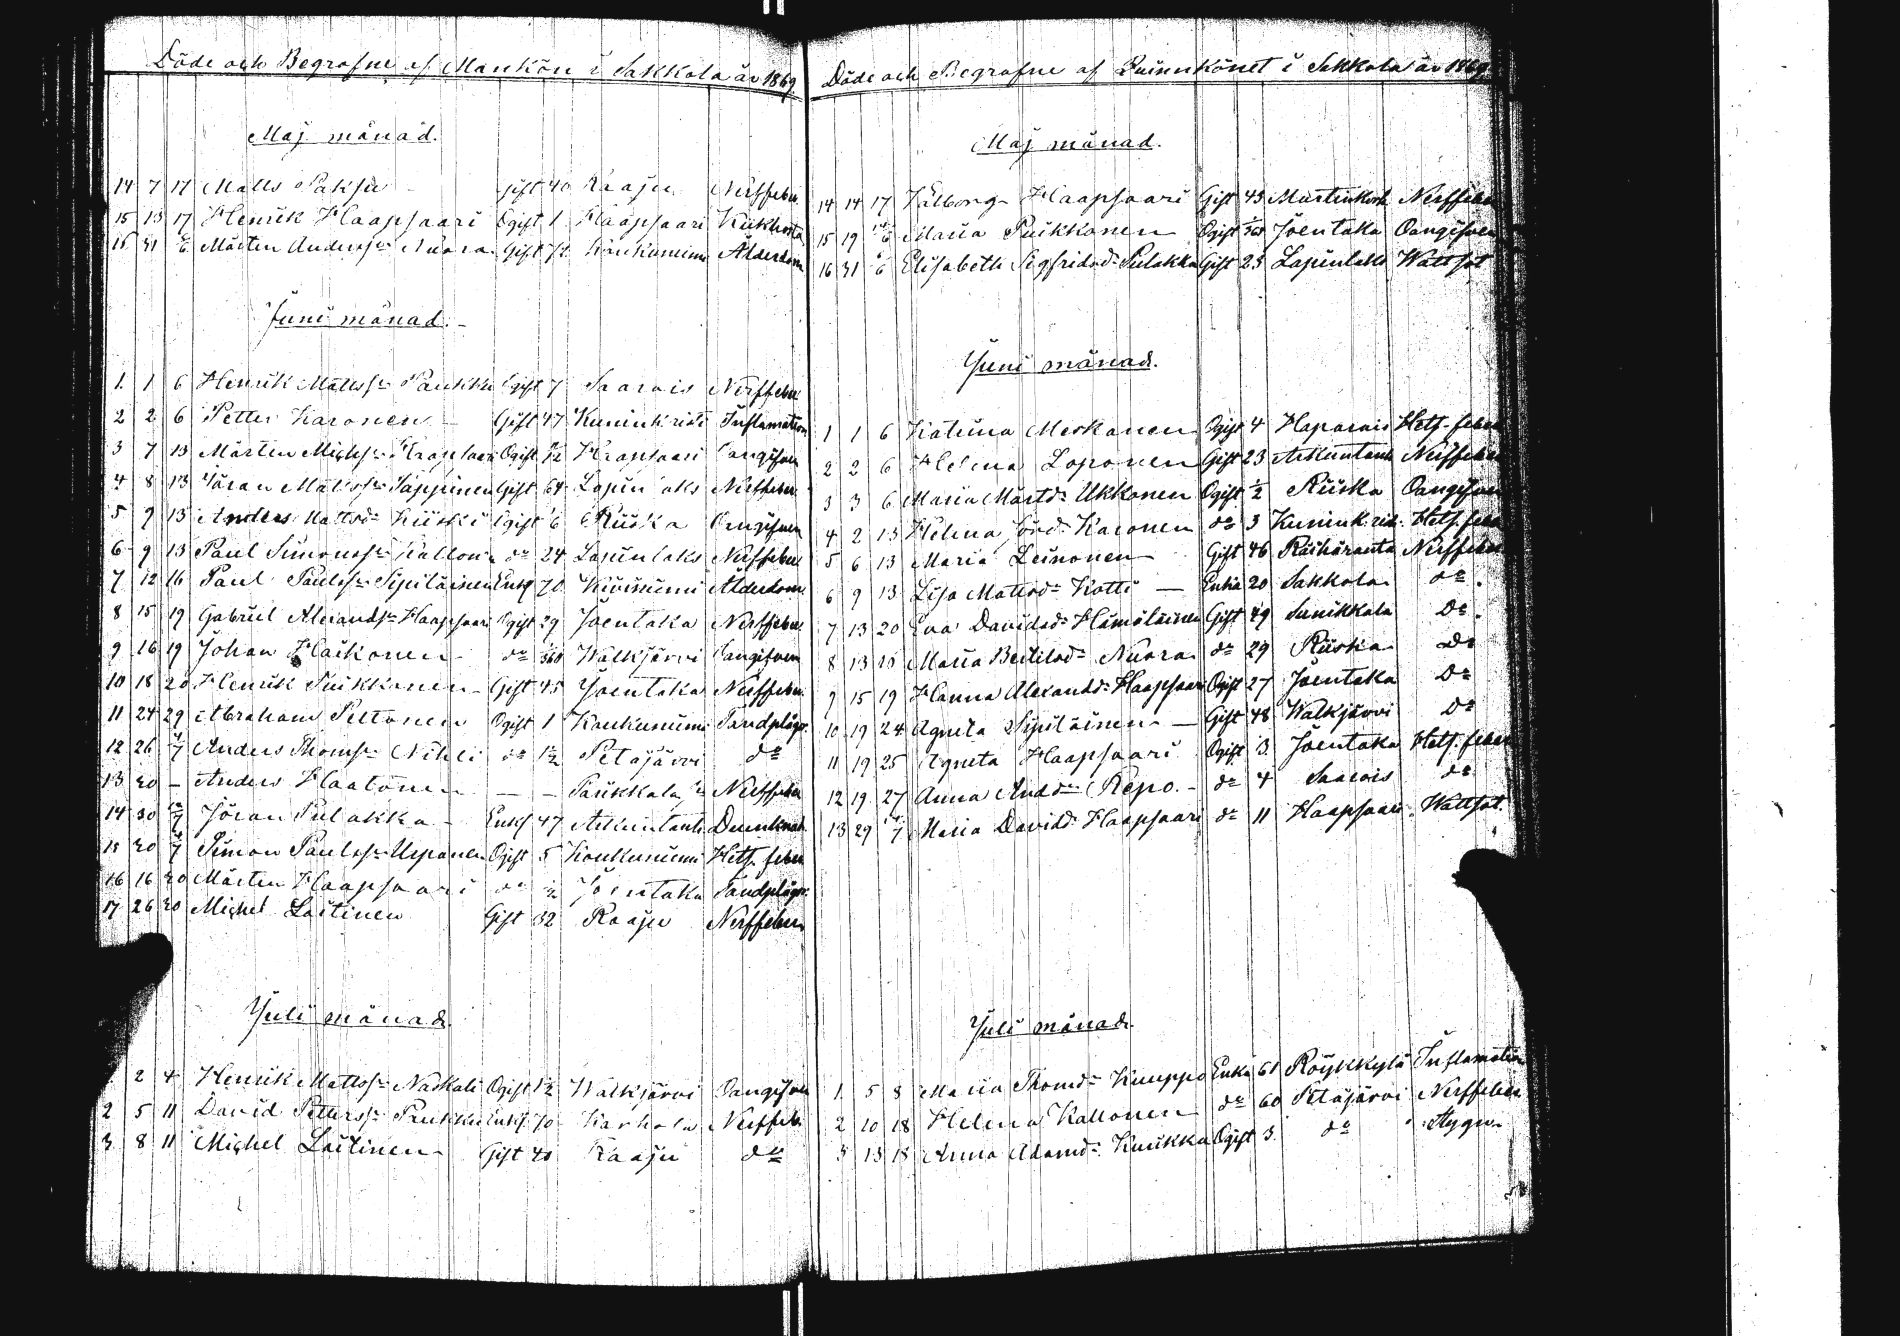 Döde och Begrafne af Mankön i Sakkola år 1869.
Maj månad.
14 7 17 Matts Paksu Gift 40 Raaju Nerffeber
15 13 17 Henrik Haapsaari Ogift 1 Haapsaari Kikhosta
16 31 6 Mårten Anderss. Nuora Gift Koukunniemi Ålderdom
Juni månad.
1 1 6 Henrik Mattss. Paukku Ogift 7 Saarois Nerffeber
2 2 6 Petter Karonen Gift 47 Kuninkristi Inflamation
3 7 13 Mårten Michss. Haapsaari Ogift Haapsaari Oangifven
4 8 13 Jöran Matss. Säppinen Gift 64 Lapinlaks Nerffeber
5 9 13 Anders Mattsd. Kiiski Ogift 6 Riiska Oangifven
6 9 13 Paul Simonss. Kallon do 24 Lapinlaks Nerffeber
7 12 16 Paul Paulss. Sipiläinen Enkl 70 Kiviniemi Ålderdom
8 15 19 Gabriel Alexandss. Haapsaari Ogift 29 Joentaka Nerffeber
9 16 19 Johan Haikonen do Walkjärvi Oangifven
10 18 20 Henrik Puikkonen Gift 45 Joentaka Nerffeber
11 24 29 Abraham Peltonen Ogift 1 Koukunniemi Tandplågor
12 26 4/7 Anders Thomss. Nikli do 1/2 Petäjärvi do
13 30 – Anders Haatonen – – Paukkala Nerffeber
14 30 Jöran Pulakka Enkl 47 Arkuntanti Drunknat
15 30 4/7 Simon Paulss. Usponen Ogift 5 Koukunniemi Hets. feber
16 16 20 Mårten Haapsaari do 1/2 Joentaka Tandplågor
17 26 30 Michel Laitinen Gift 32 Raaju Nerffeber
Juli månad.
2 4 Henrik Mattss. Naskali Ogift 1/2 Walkjärvi Oangifven
2 5 11 David Peterss. Paukku Enkl 70 Karhola Nerffeb.
3 8 11 Michel Laitinen Gift 40 Raaju do
Döde och Begrafne af Quinnkönet i Sakkola år 1869.
Maj månad.
14 14 17 Walborg Haapsaari Gift 43 Martinkorb Nerffeber
15 19 6 Maria Puikkonen Ogift Joentaka Oangifven
16 31 6 Elisabeth Sigfridsd. Pulakka Gift 25 Lapinlaks Wattsot
Juni månad.
1 1 6 Katrina Meskanen Ogift 4 Haparais Hets. feber
2 2 6 Helena Loponen Gift 23 Arkuntanti Nerffeber
3 3 6 Maria Mårtd. Ukkonen Ogift 1/2 Riiska Oangifven
4 2 13 Helena Jörd. Karonen do 3 Kuninkrist. Hets. feber
5 6 13 Maria Leinonen Gift 46 Räihäranta Nerffeber
6 9 13 Lisa Mattsd. Kotti Enka 20 Sakkola do
7 13 20 Eva Davidsd. Hämäläinen Gift 49 Sunikkala Do
8 13 16 Maria Bertilsd. Nuora do 29 Riiska Do
9 15 19 Hanna Alexandd. Haapsaari Ogift 27 Joentaka Do
10 19 24 Agneta Sipiläinen Gift 48 Walkjärvi Do
11 19 25 Agneta Haapsaari Ogift 3 Joentaka Hets. feber
12 19 27 Anna Andd. Repo do 4 Saarois do
13 29 4/7 Maria Davidd. Haapsaari do 11 Haapsaari Wattsot.
Juli månad.
1 5 8 Maria Thomd. Kuuppo Enka 61 Röykkylä Inflamation
2 10 18 Helena Kallonen do 60 Petäjärvi Nerffeber
3 13 18 Anna Adamd. Kuikka Ogift 3 do Stygn